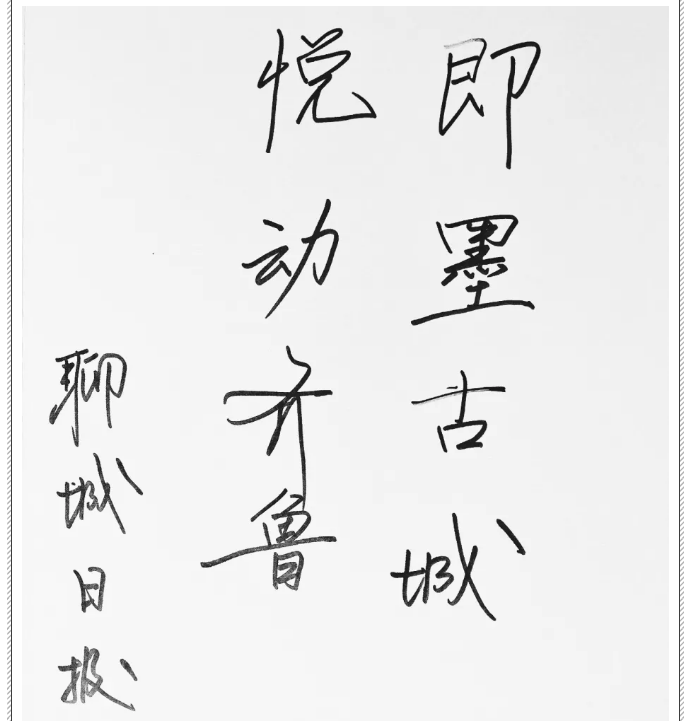 即墨古城
悦动齐鲁
聊城日报